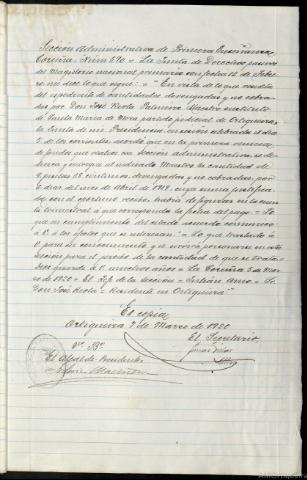 Sección Administrativa de Primera Enseñanza
Coruña - Núm 570 - La Junta de Derechos pasivos
del Magisterio nacional primario con fecha 16 de Febre-
ro, me dice lo que sigue: - "En vista de lo que resulta
del expediente de cantidades devengadas y no cobradas
por Don José Rivola Maestro sustituto
de Santa María de Mera partido judicial de Ortigueira,
la Junta de mi Presidencia en sesión celebrada el día
5 de los corrientes, acordó que en la primera remesa
de fondos que realice esa Sección administrativa se de-
duzca y entregue al indicado Maestro la cantidad de
9 pesetas 08 céntimos, devengadas y no cobradas, por
6 días del mes de Abril de 1919, cuya suma justifica-
da con el oportuno recibo, habrá de figurar en su cuen-
ta trimestral á que corresponda la fecha del pago. - Lo
que en cumplimiento del citado acuerdo comunico
á V. á los efectos que se interesan." - Lo que traslado á
V. para su conocimiento y se servirá personarse en esta
Sección para el percibo de la cantidad de que se trata. -
Dios guarde á V. muchos años - La Coruña 5 de Mar-
zo de 1920 - El Jefe de la Sección - - Sr.
Don José - Residente en Ortigueira"
Es copia
Ortigueira 9 de Marzo de 1920
Vº Bº El Secretario,
El Alcalde-Presidente